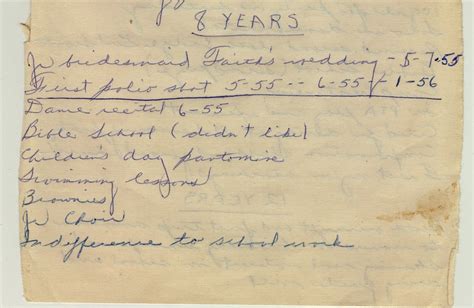 8 YEARS
Jr bridesmaid Faith's wedding - 5-7-55
First polio shot 5-55 -- 6-55 - 1-56
Dance recital 6-55
Bible School (didn't like)
Children's day pantomine
Swimming lessons
Brownies
Jr Choir
Indifference to school work